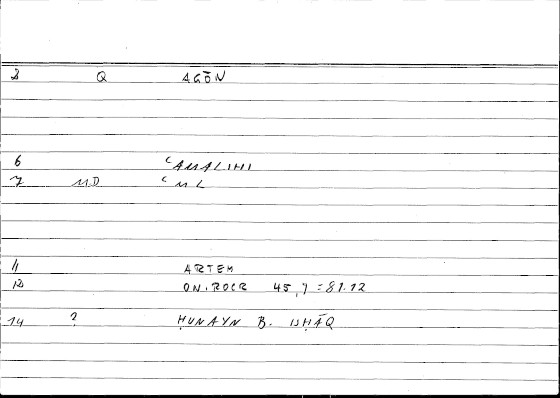 3 Q AGŌN
6 ʿAMALIHI
7 MD ʿML
11 ARTEM
12 ONIROCR 45,7 = 81.12
14 ? ḤUNAYN B. ISḤĀQ